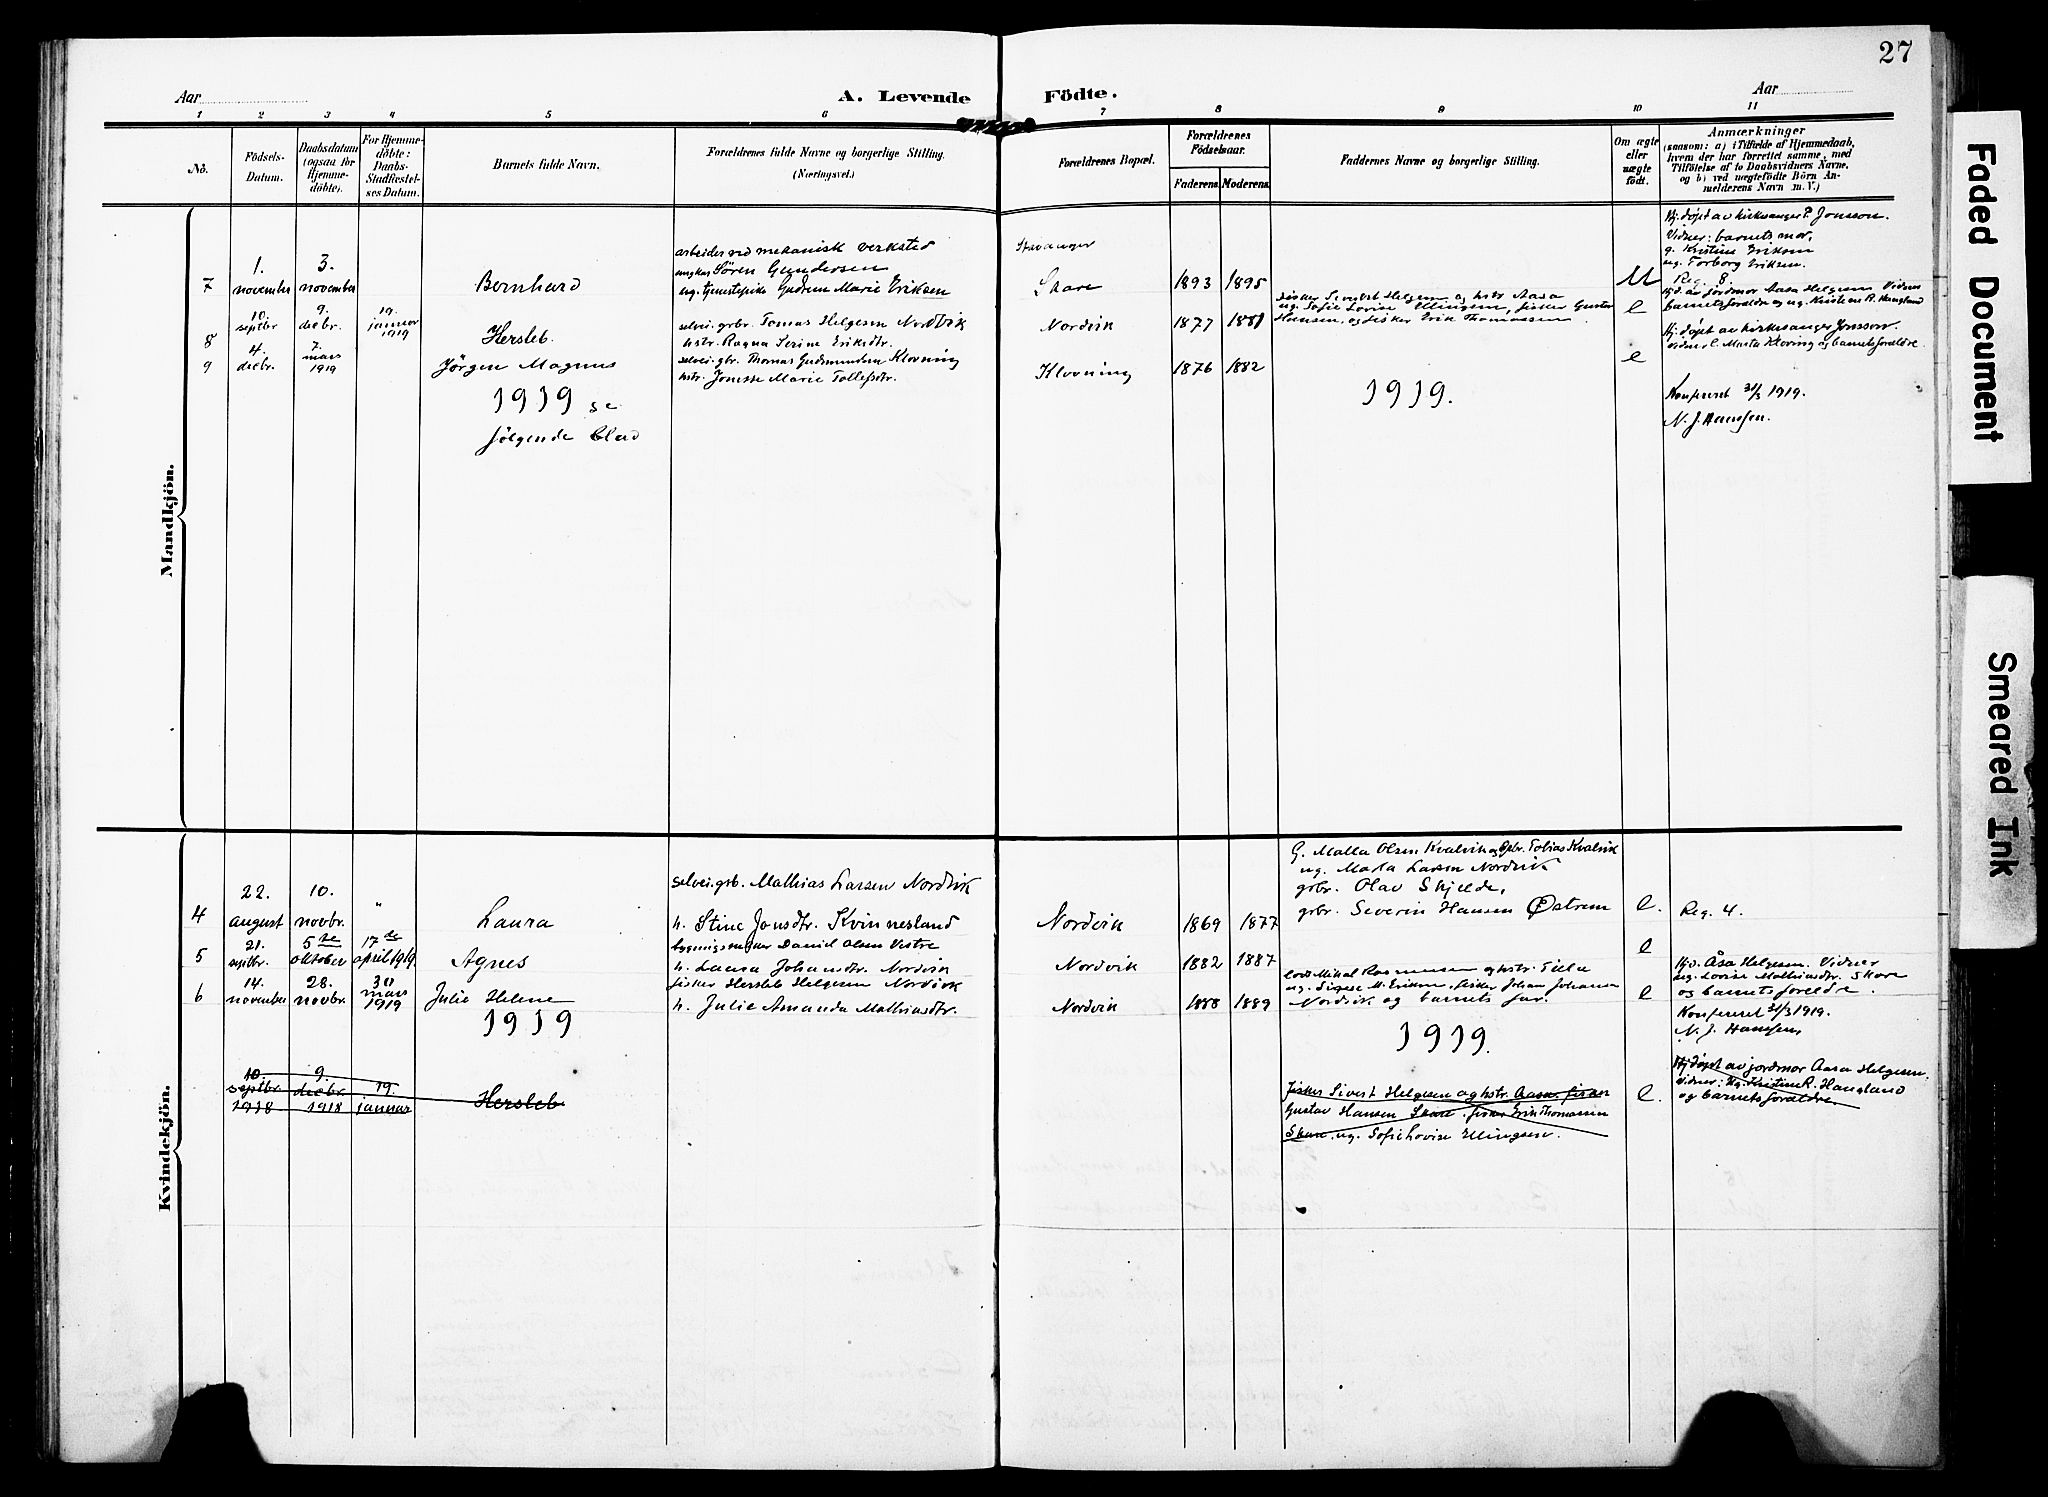 27
Aar
A. Levende Födte.
Aar
1 2 3 4 5 6 7 8 9 10 11
No.
Födsels-
Datum.
Daabsdatum
(ogsaa for
Hjemme-
döbte).
For Hjemme-
döbte:
Daabs-
Stadfæstel-
ses Datum.
Barnets fulde Navn.
Forældrenes fulde Navne og borgerlige Stilling.
(Næringsvei.)
Forældrenes Bopæl.
Forældrenes
Födselsaar.
Faderens. Moderens.
Faddernes Navne og borgerlige Stilling.
Om ægte
eller
uægte
födt.
Anmærkninger
(saasom: a) i Tilfælde af Hjemmedaab,
hvem der har forrettet samme, med
Tilföielse af to Daabsvidners Navne,
og b) ved uægtefödte Börn An-
melderens Navn m. V.)
Mandkjön.
7
1.
november
3.
november
Bernhard
arbeider ved mekanisk verksted
ungkar Sören Gundersen
ug. tjenestepike Gudrun Marie Eriksen
Stavanger
Skare
1893 1895
U
Hj. døpt av kirkesanger P. Jonsson.
Vidner: barnets mor,
g. Kristine Eriksen
ug. Torborg Eriksen.
Reg. 8.
8
10.
septbr
9.
decbr.
19.
januar
1919
Hersleb.
selvei. grbr. Tomas Helgesen Nordvik
hstr. Ragna Serine Eriksdtr.
Nordvik
1877 1881
fisker Sivert Helgesen og hstr. Aasa
ug. Sofie Lovise Ellingsen, fisker Gustav
Hansen, og fisker Erik Thomassen
e
Hjd. av jordmor Aasa Helgesen Vidner
barnets foreldre og ug. Kristine R. Haugland
9
4.
decbr.
7.
mars
1919
Jörgen Magnus
selvei. gbr. Thomas Gudmundsen Klovning
hstr. Jonette Marie Tollefsdtr.
Klovning
1876 1882
e
Hj. døpt av kirkesanger Jonsson.
vidner: Marta Klovning og barnets foreldre.
1919 se
følgende blad
1919.
Konfereret 31/3 1919.
N. J. Hansen.
Kvindekjön.
4
22.
august
10.
novbr.
"
Laura
selvei. grb. Mathias Larsen Nordvik
h. Stine Jonsdtr. Kvinnesland
Nordvik
1869 1877
G. Malla Olsen Kvalvik og Gbr. Tobias Kvalvik
ug. Marta Larsen Nordvik
grbr. Olav Skjelde,
grbr. Severin Hansen Østrem
e.
Reg. 4.
5
21.
septbr.
5te
oktober
17de
april 1919.
Agnes
bygningssnekker Daniel Olsen Vestre
h. Laura Johansdtr. Nordvik
Nordvik
1882 1887
e
6
14.
november
28.
novbr.
30
mars
1919
Julie Helene
fisker Hersleb Helgesen Nordvik
h. Julie Amanda Mathiasdtr.
Nordvik
1888 1889
lods Mikal Rasmussen og hstr. Tilla
ug. Sirgese M. Eriksen, fisker Johan Johansen
Nordvik og barnets far.
e
Hjd. Åsa Helgesen. Vidner
ug. Lovise Mathiasdtr. Skare
og barnets foreldre.
1919
1919.
Konfereret 31/3 1919.
N. J. Hansen.
10.
septbr.
1918
9.
decbr.
1918
19.
januar
Hersleb
fisker Sivert Helgesen og hstr. Aasa. fisker
Gustav Hansen Skare. fisker Erik Thomassen
Skare. ug. Sofie Lovise Ellingsen.
e.
Hj. døpt av jordmor Aasa Helgesen.
vidner: Ug. Kristine R. Haugland
og barnets foreldre.
Faded Document
Smeared Ink